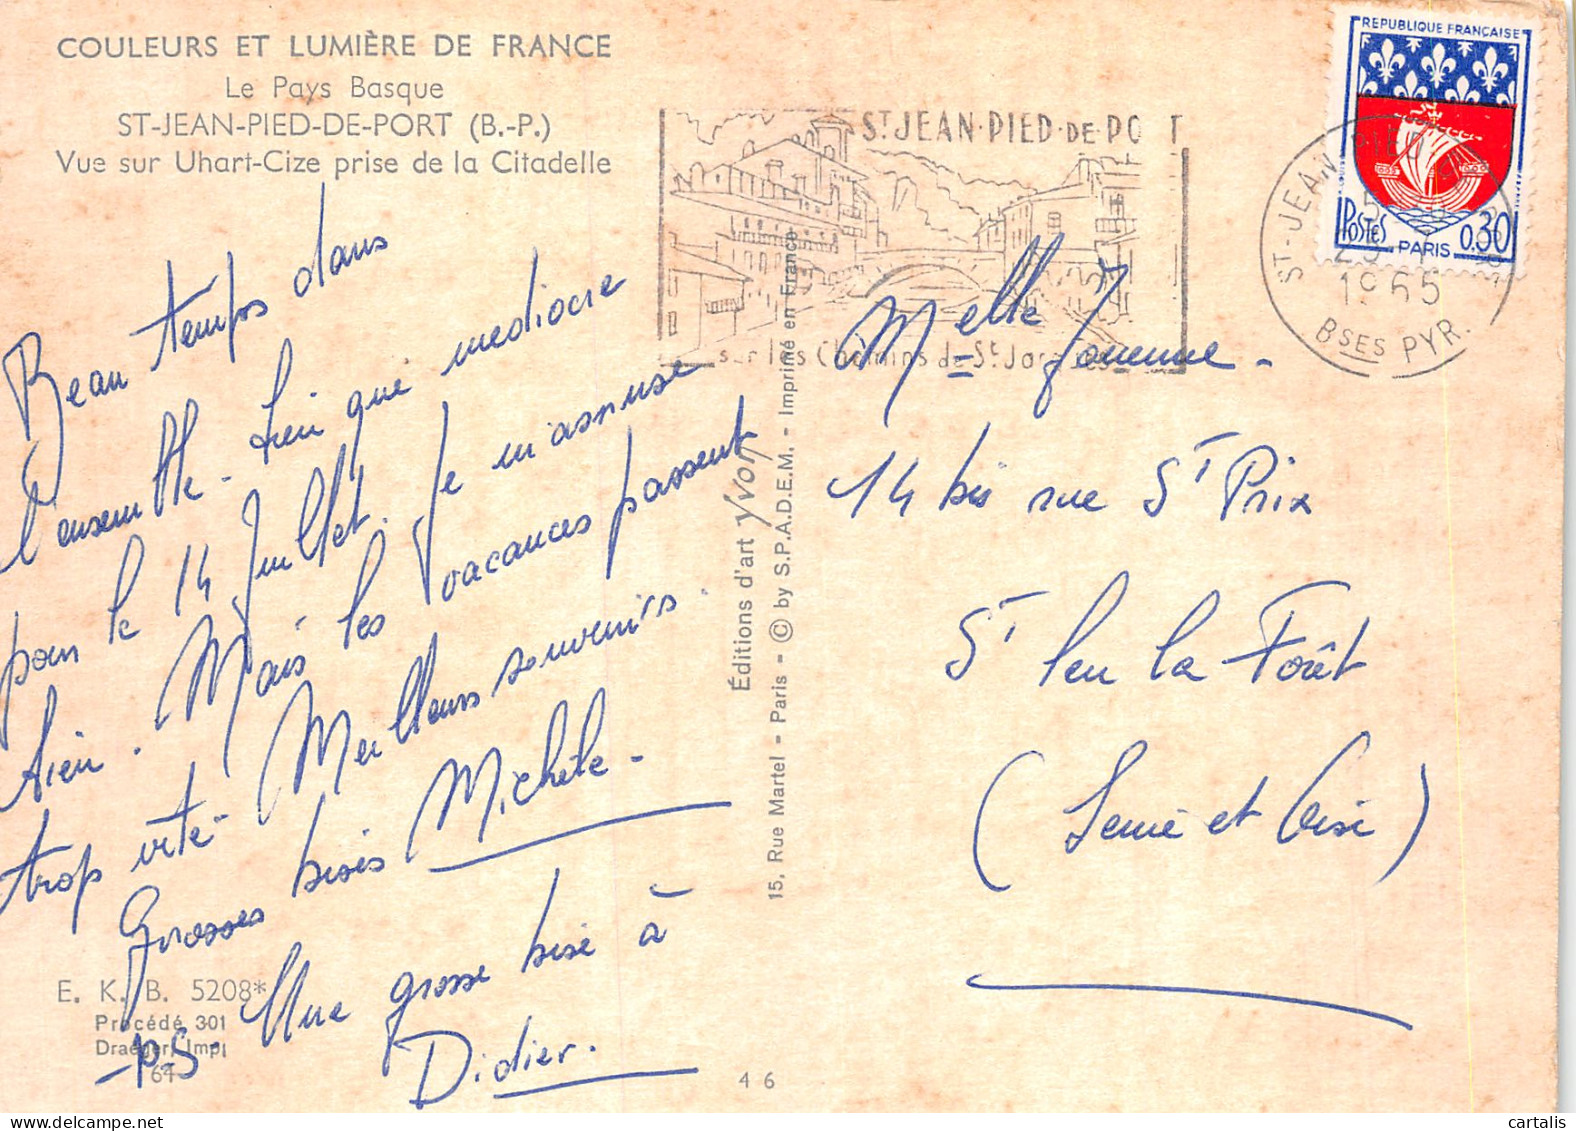 COULEURS ET LUMIÈRE DE FRANCE
Le Pays Basque
ST-JEAN-PIED-DE-PORT (B.-P.)
Vue sur Uhart-Cize prise de la Citadelle
Beau temps dans
l'ensemble. bien que mediocre
pour le 14 Juillet. Je m'amuse
bien. Mais les vacances passent
trop vite. Meilleurs souvenirs.
Grosses bises Michèle.
P.S. Une grosse bise à
Didier.
E. K. B. 5208*
Procédé 301
Draeger, Imp.
64
Éditions d'art Yvon
15, Rue Martel - Paris - © by S.P.A.D.E.M. - Imprimé en France
4 6
ST JEAN-PIED-DE-PO T
sur les Chemins de St Jacques
REPUBLIQUE FRANÇAISE
POSTES PARIS 0,30
ST-JEAN PIED
1965
BSES PYR.
Melle Jouenne.
14 bis rue St Prix
St Leu la Forêt
(Seine et Oise)